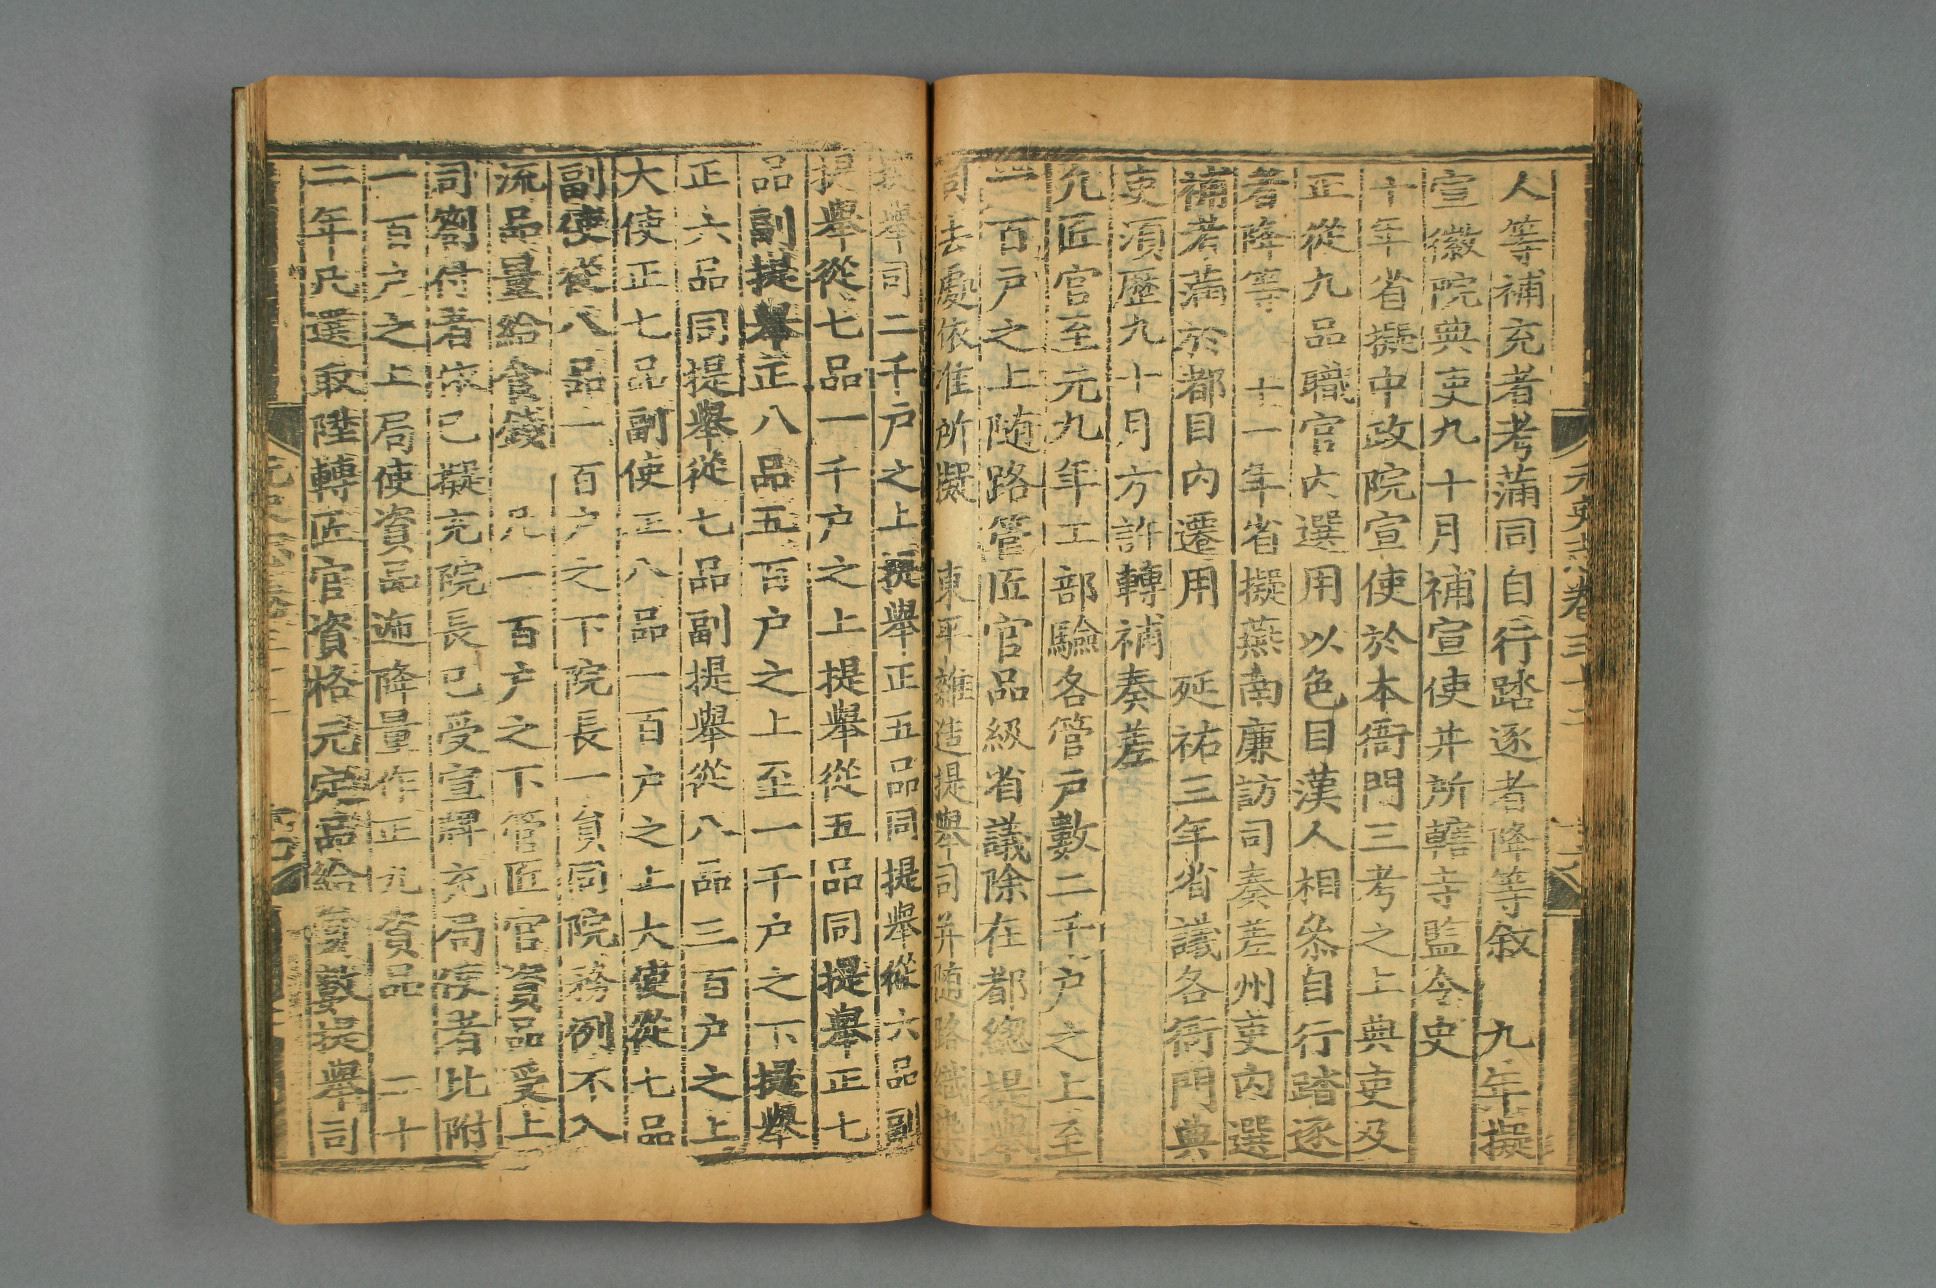 人等補充者考滿同自行踏逐者降等敘　九年擬
宣徽院典吏九十月補宣使并所轄寺監令史
十年省擬中政院宣使於本衙門三考之上典吏及
正從九品職官內選用以色目漢人相叅自行踏逐
者降等　十一年省擬燕南廉訪司奏差州吏內選
補考滿於都目內遷用　延祐三年省議各衙門典
吏須歷九十月方許轉補奏差
凡匠官至元九年工部驗各管户數二千户之上至
一百户之上随路管匠官品級省議除在都總提舉
司去處依准所擬　東平雜造提舉司并随路織染
提舉司二千户之上提舉正五品同提舉從六品副
提舉從七品一千户之上提舉從五品同提舉正七
品副提舉正八品五百户之上至一千户之下提舉
正六品同提舉從七品副提舉從八品三百户之上
大使正七品副使正八品一百户之上大使從七品
副使從八品一百户之下院長一員同院務例不入
流品量給食錢　凡一百户之下管匠官資品受上
司劄付者依已擬充院長已受宣牌充局院者比附
一百户之上局使資品遞降量作正九資品　二十
二年凡選取陞轉匠官資格元定品給員數提舉司
元史志卷三十二